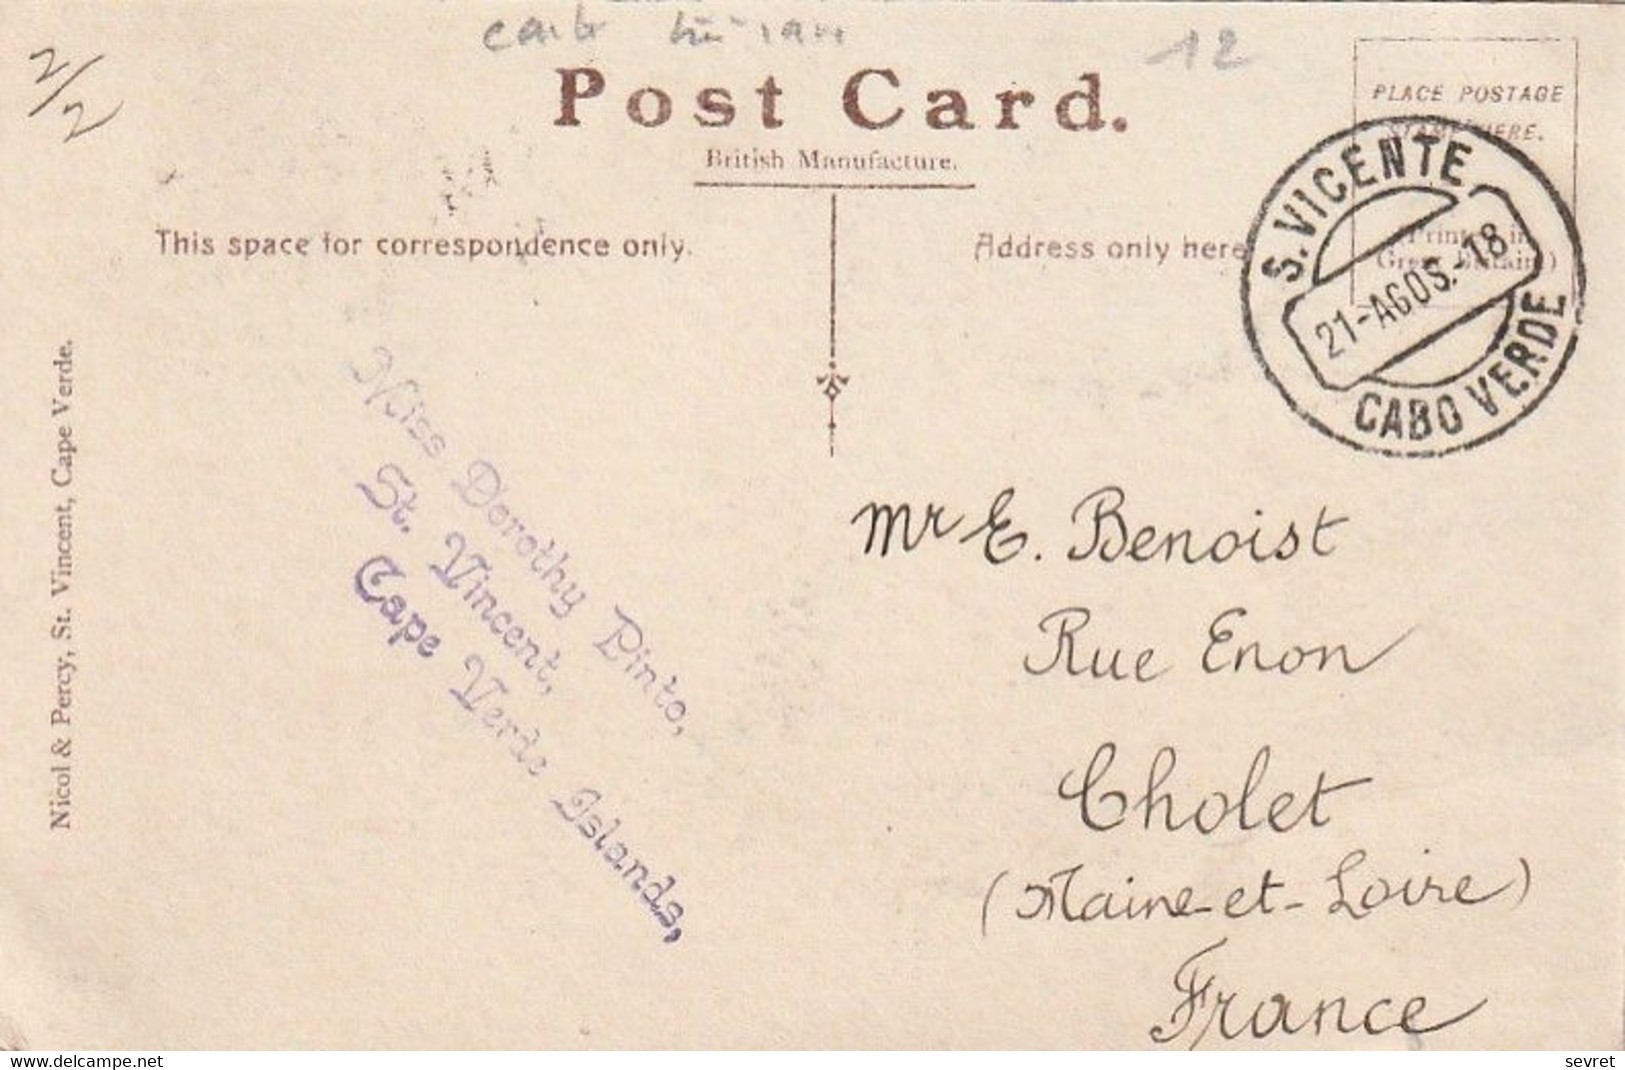 2/2
12
Post Card.
British Manufacture.
PLACE POSTAGE
STAMP HERE.
(Printed in
Great Britain)
This space for correspondence only.
Address only here
S. VICENTE
21-AGOS.-18
CABO VERDE
Miss Dorothy Pinto,
St. Vincent,
Cape Verde Islands,
Nicol & Percy, St. Vincent, Cape Verde.
Mr E. Benoist
Rue Enon
Cholet
(Maine-et-Loire)
France
www.delcampe.net
sevret